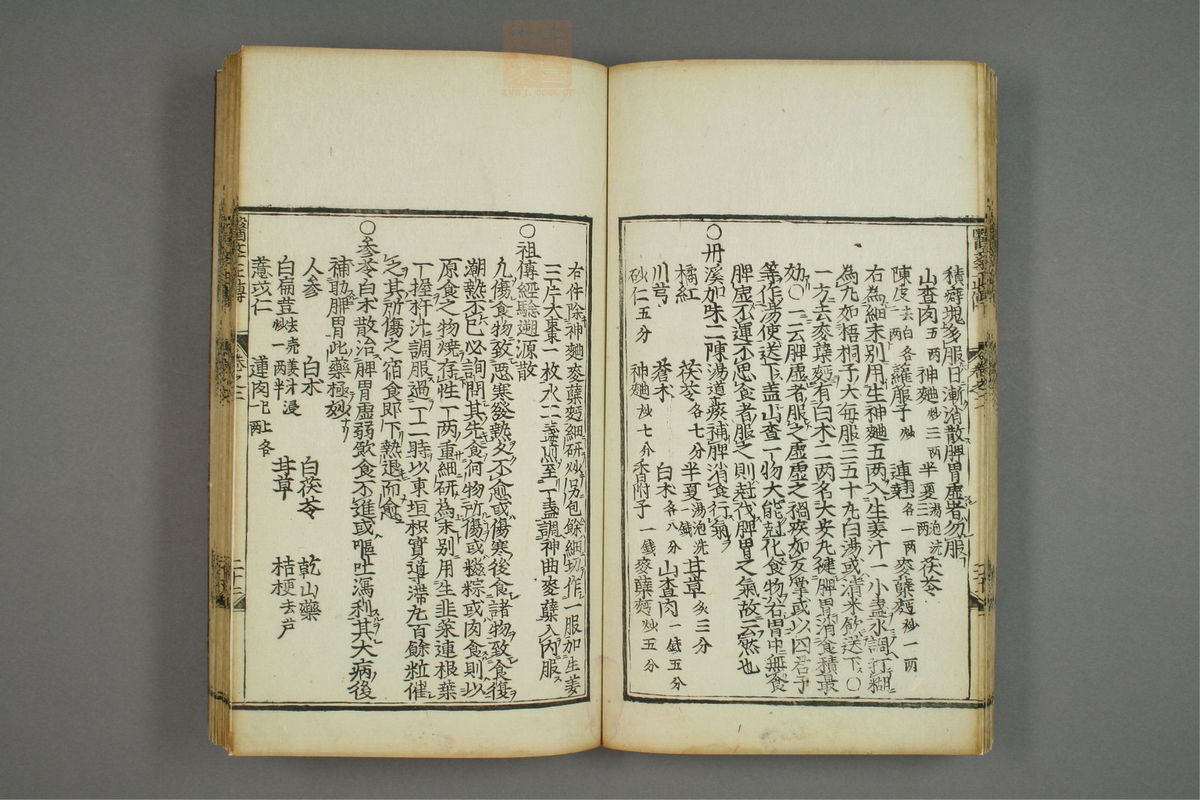 積癖塊多服日漸消散脾胃虛者勿服
山查肉五兩 神麯炒三兩 半夏湯泡洗三兩 茯苓
陳皮去白一兩 各 蘿服子炒 連翹各一兩 麥蘖麪炒一兩
右為細末別用生神麯五兩入生姜汁一小盞水調打糊
為丸如梧桐子大每服三五十丸白湯或清米飲送下○
一方去麥蘖麪有白朮二兩名大安丸健脾胃消食積最
効○一云脾虛者服之虛虛之禍疾如反掌或以四君子
等作湯使送下盖山查一物大能尅化食物若胃中無食
脾虛不運不思食者服之則尅伐脾胃之氣故云然也
○丹溪加味二陳湯道痰補脾消食行氣
橘紅 茯苓各七分 半夏湯泡洗一錢 甘草炙三分
川芎 蒼朮 白朮各八分 山查肉一錢五分
砂仁五分 神麯炒七分 香附子一錢 麥蘖麪炒五分
右件除神麯麥蘖麪細研炒另包餘細切作一服加生姜
三片大棗一枚水二盞煎至一盞調神曲麥蘖入內服
○祖傳經驗遡源散
九傷食物致惡寒發熱久不愈或傷寒後食諸物致食復
潮熱不已必詢問其先食何物所傷或糍粽或肉食則以
原食之物燒存性一兩重細研為末別用生韭菜連根葉
一握杵汁調服過一二時以東垣枳實導滯丸百餘粒催
之其所傷之宿食即下熱退而愈
○參苓白朮散治脾胃虛弱飲食不進或嘔吐瀉利其大病後
補助脾胃此藥極妙
人參 白朮 白茯苓 乾山藥
白扁荳去壳姜汁浸炒一兩半 甘草 桔梗去芦
薏苡仁 蓮肉已上各一兩
醫學正傳
卷之三
二十三